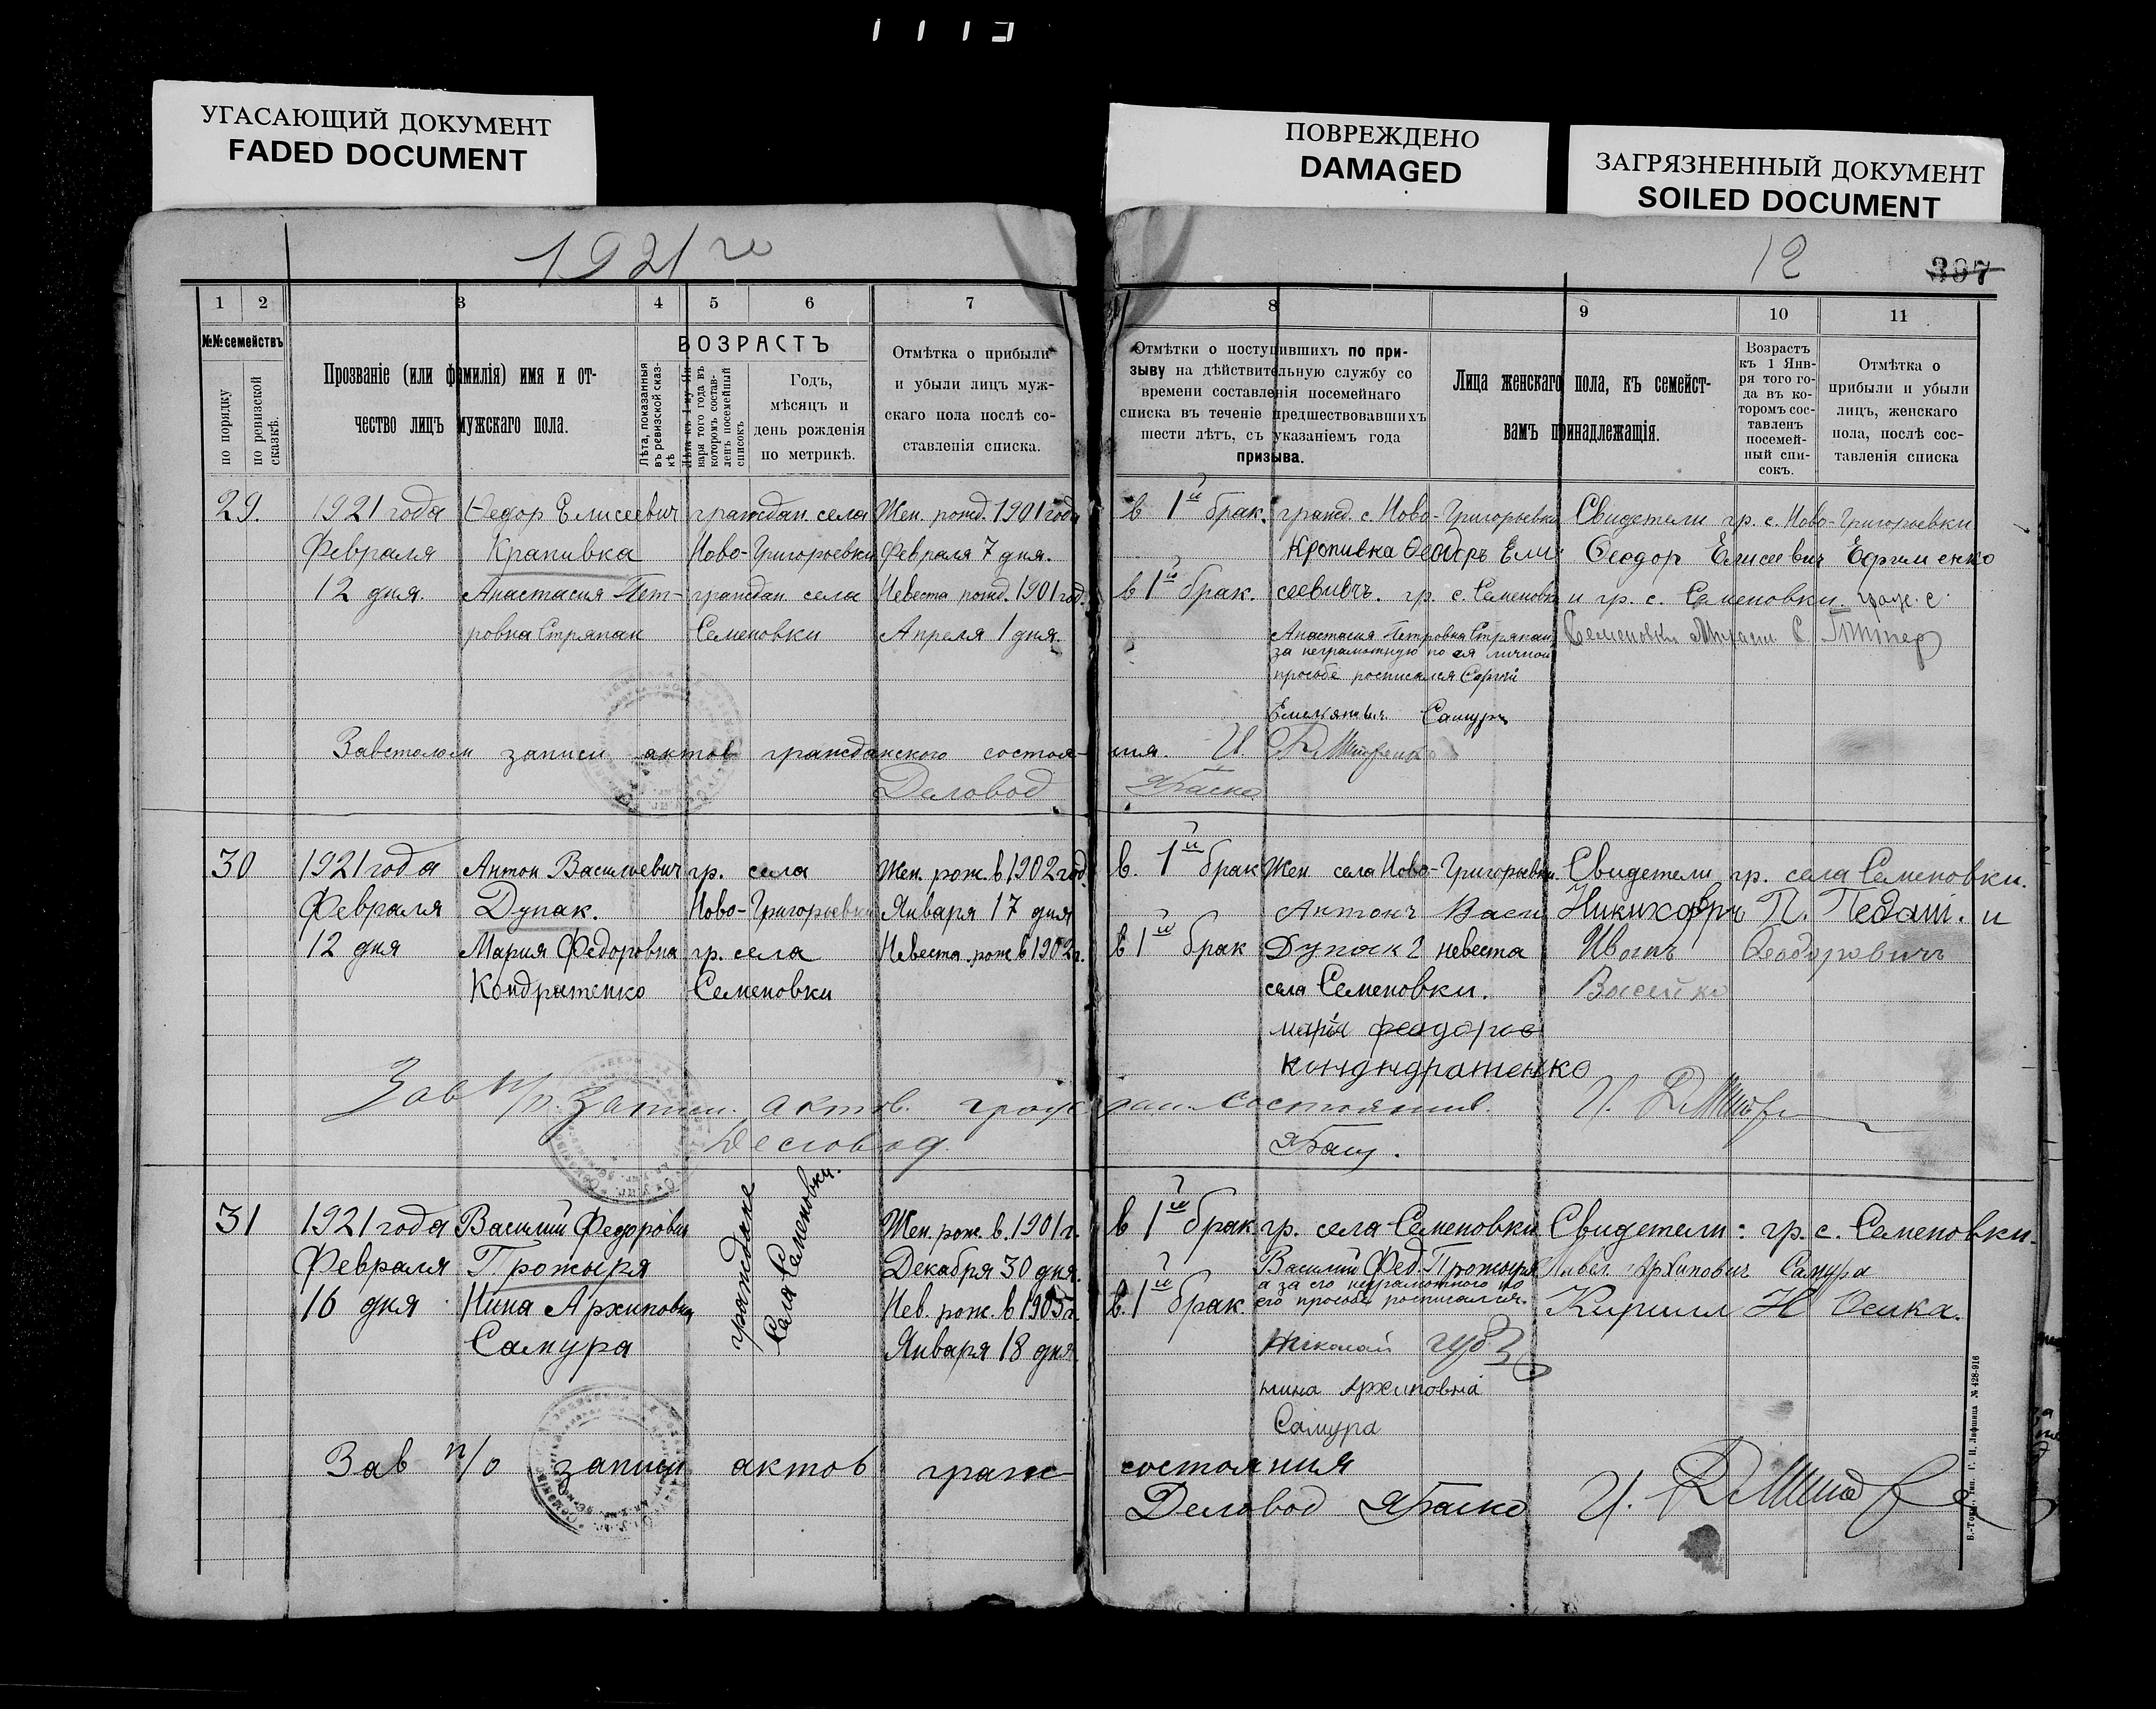 УГАСАЮЩИЙ ДОКУМЕНТ
FADED DOCUMENT
ПОВРЕЖДЕНО
DAMAGED
ЗАГРЯЗНЕННЫЙ ДОКУМЕНТ
SOILED DOCUMENT
1921 го
12
397
1 2 3 4 5 6 7 8 9 10 11
№№ семействъ
по порядку
по ревизской сказкѣ.
Прозваніе (или фамилія) имя и от-
чество лицъ мужскаго пола.
ВОЗРАСТЪ
Лѣта, показанныя
въ ревизской сказ-
кѣ
Лѣта къ 1-му Ян-
варя того года въ
которомъ состав-
ленъ посемейный
списокъ
Годъ,
мѣсяцъ и
день рожденія
по метрикѣ.
Отмѣтка о прибыли
и убыли лицъ муж-
скаго пола послѣ со-
ставленія списка.
Отмѣтки о поступившихъ по при-
зыву на дѣйствительную службу со
времени составленія посемейнаго
списка въ теченіе предшествовавшихъ
шести лѣтъ, съ указаніемъ года
призыва.
Лица женскаго пола, къ семейст-
вамъ принадлежащія.
Возрастъ
къ 1 Янв-
ря того го-
да въ ко-
торомъ сос-
тавленъ
посемей-
ный спи-
сокъ.
Отмѣтка о
прибыли и убыли
лицъ, женскаго
пола, послѣ сос-
тавленія списка
29. 1921 года Федор Елисеевич граждан. села Жен. рожд. 1901 года в 1й брак. гражд. с. Ново-Григорьевки Свидетели гр. с. Ново-Григорьевки
Февраля Крапивка Ново-Григорьевки Февраля 7 дня. Кропивка Феодоръ Ели- Феодор Елисеевич Ефименко
12 дня. Анастасия Пет- граждан. села Невеста рожд. 1901 год. в 1й брак. сеевичъ. гр. с. Семеновки и гр. с. Семеновки. гражд. с.
ровна Стряпан Семеновки Апреля 1 дня. Анастасия Петровна Стряпан Семеновки
за неграмотную по ея личной
просьбе росписался Сергей
Емельянович Самура
Завстолом записи актов гражданского состоя-ния. И.
Деловод
30 1921 года Антон Васильевич гр. села Жен. рож. в 1902 год. в. 1й брак Жен села Ново-Григорьевки. Свидетели гр. села Семеновки.
Февраля Дупак. Ново-Григорьевки Января 17 дня Антонъ Васи Никихворъ П. Педаш. и
12 дня Мария Федоровна гр. села Невеста рож в 1902 г. в 1й брак Дупак невеста Иванъ Феодоровичъ
Кондратенко Семеновки села Семеновки.
марія феодоров
кондндратенко
Зав п/о. записи. актов. граж дан. состояния. И.
Деловод.
31 1921 года Василий Федорович граждане Села Семеновки. Жен. рож. в. 1901 г. в 1й брак гр. села Семеновки Свидетели: гр. с. Семеновки.
Февраля Протыря Декабря 30 дня. Василий Фед. Протыря Павел Архипович Самура
а за его неграмотного по
16 дня Нина Архиповна Нев. рож. в 1905 г. в. 1й брак его просьбе росписался. Кирилл Н Осика.
Самура Января 18 дня Николай
нина Архиповна
Самура
Зав п/о записи актов граж состояния
Деловод ЯБаско И.